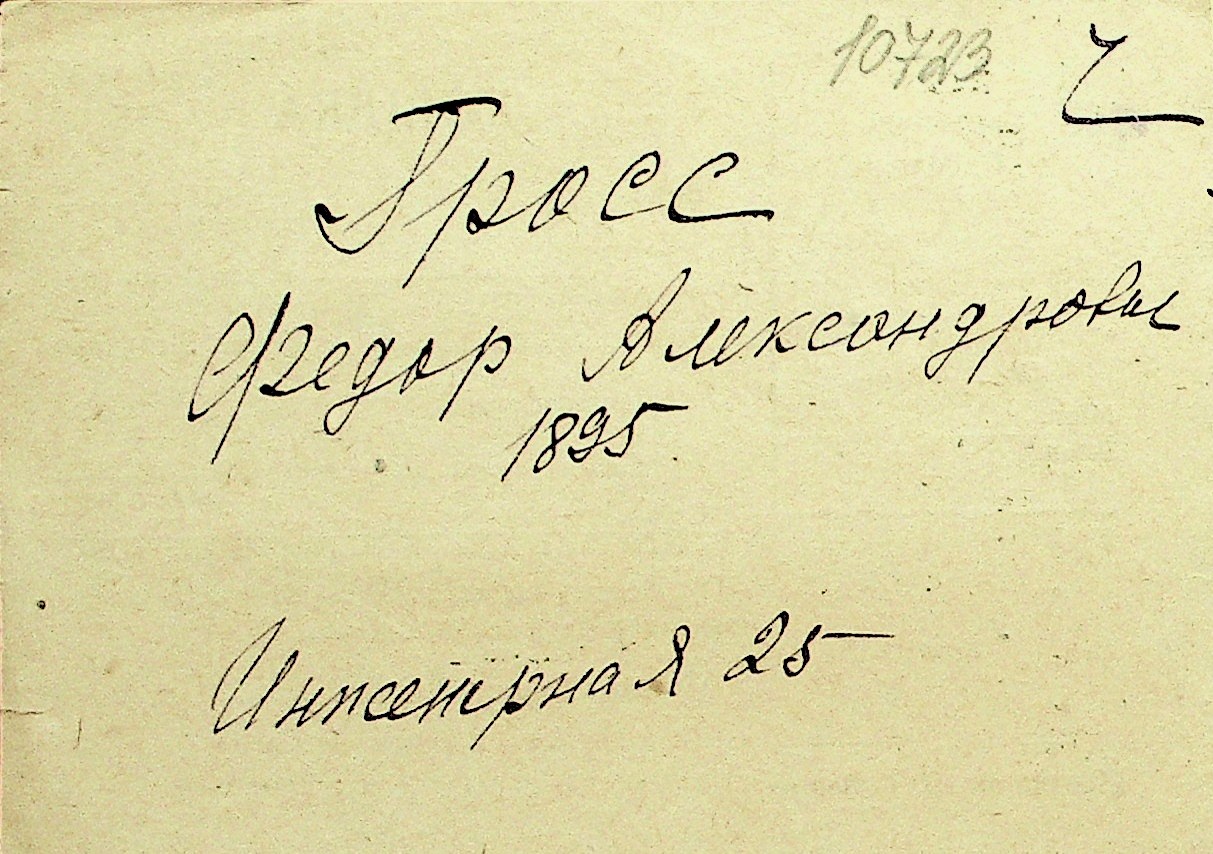 10723
Гросс
Федор Александрович
1895
Инженерная 25